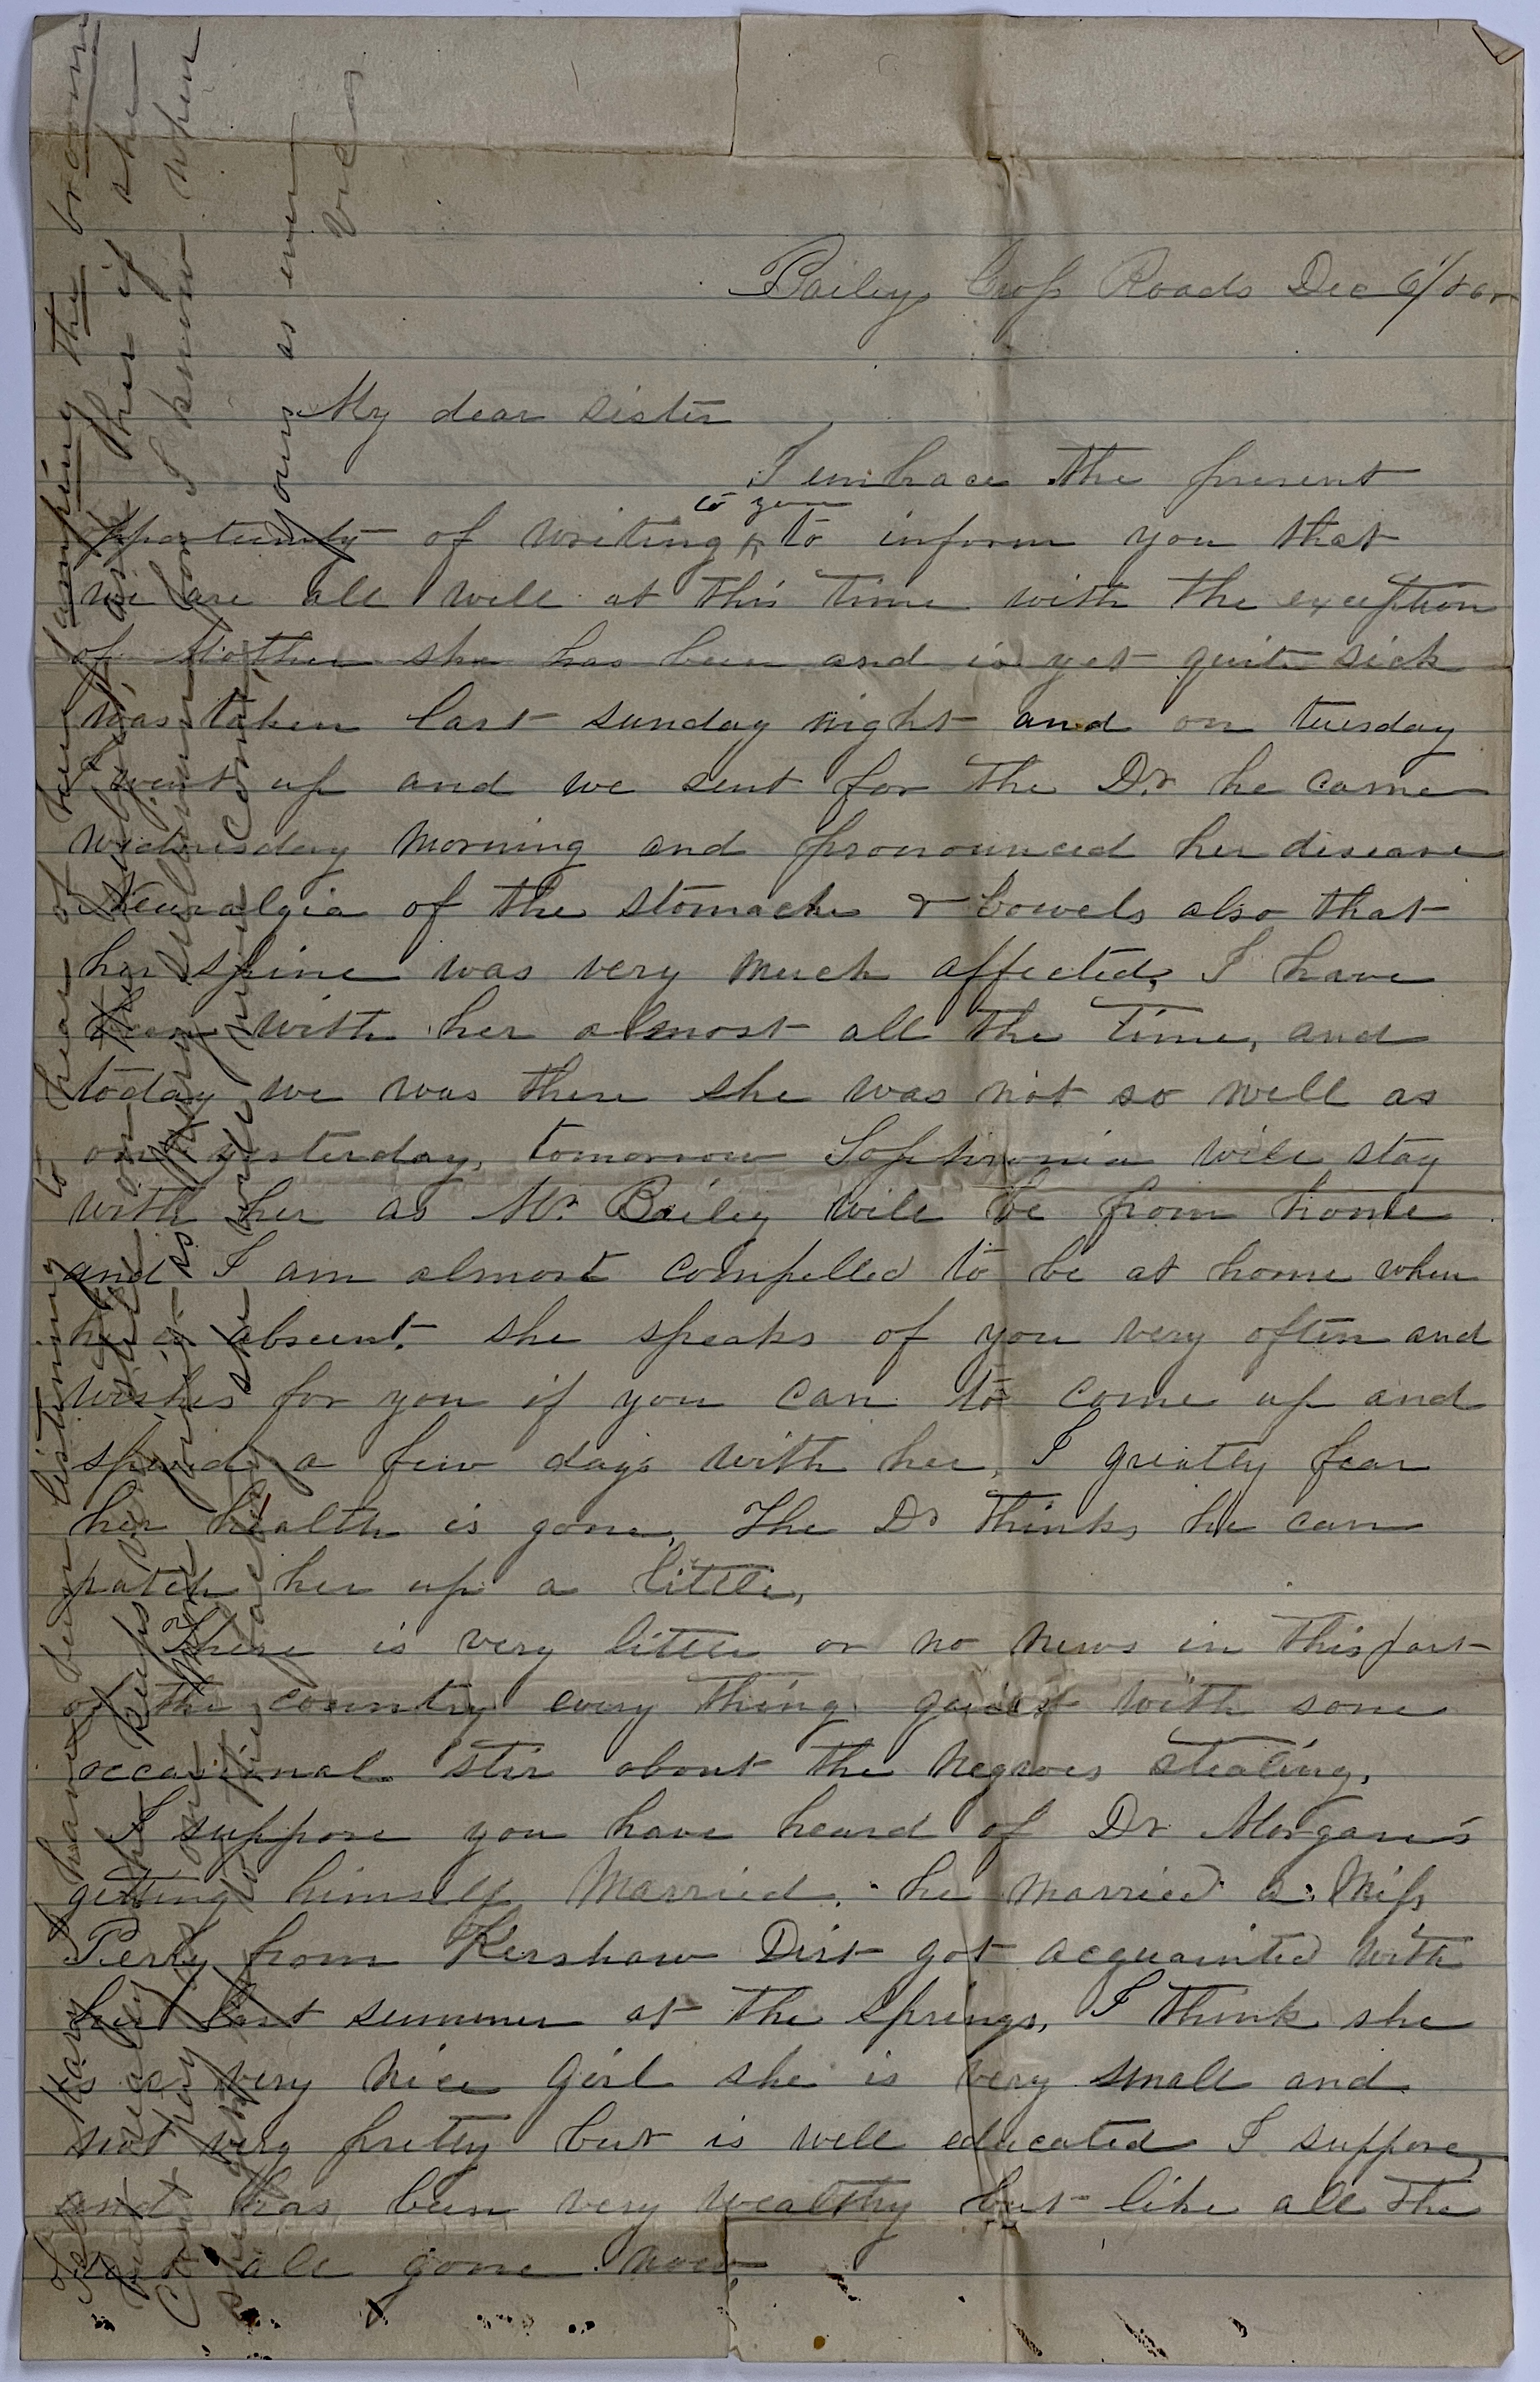 Baileys Cross Roads Dec 6/
My dear sister
I embrace the present
opportunity of writing to you to inform you that
we are all well at this time with the exception
of Mother she has been and is yet quite sick
was taken last sunday night and on tuesday
I went up and we sent for the Dr he came
wednesday morning and pronounced her disease
Neuralgia of the stomache & bowels also that
her spine was very much affected, I have
been with her almost all the time, and
today we was there she was not so well as
on yesterday, tomorrow Sophronia will stay
with her as Mr Bailey will be from home
and I am almost compelled to be at home when
he is absent. she speaks of you very often and
wishes for you if you can to come up and
spend a few days with her, I greatly fear
her health is gone, The Dr thinks he can
patch her up a little,
There is very little or no news in this part
of the country every thing quiet with some
occasional stir about the negroes stealing,
I suppose you have heard of Dr Morgan's
getting himself Married. he married a Miss
Perry from Kershaw Dist got acquainted with
her last summer at the springs, I think she
is a very nice girl she is very small and
not very pretty but is well educated I suppose,
and has been very wealthy but like all the
rest all gone now
listening to hear of her jumping the broom
ask her if she
I know when
yours as ever
Vic